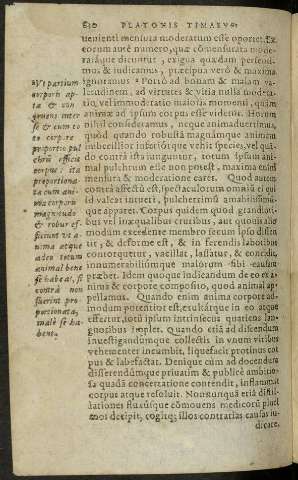 PLATONIS TIMAEVS
uenienti mensura moderatum esse oportet. Ex
eorum autē numero, quæ cōmensurata mode-
rataque dicuntur, exigua quædam persenti-
mus & iudicamus, præcipua verò & maxima
ignoramus. Porrò ad bonam & malam va-
letudinem, ad virtutes & vitia nulla modera-
tio, vel immoderatio maior momenti, quàm
animæ ad ipsum corpus esse videtur. Horum
nihil consideramus, neque animaduertimus,
quòd quando robustā magnámque animam
imbecillior inferiórque vehit species, vel quā-
do contrà ista iunguntur, totum ipsum ani-
mal pulchrum esse non potest, maxima enim
mensura & moderatione caret. Quod autem
contrà affectū est, spectaculorum omniū ei qui
id valeat intueri, pulcherrimū amabilissimū-
que apparet. Corpus quidem quod grandiori-
bus vel inæqualibus cruribus, aut quouis alio
modum excedente membro secum ipso dissen
tit, & deforme est, & in ferendis laboribus
contorquetur, vacillat, lassatur, & concidit,
innumerabiliúmque malorum sibi causam
præbet. Idem quoque iudicandum de eo ex a-
nima & corpore composito, quod animal ap-
pellamus. Quando enim anima corpore ad-
modum potentior est, exultátque in eo atque
effertur, totū ipsum intrinsecùs quatiens lan-
guoribus implet. Quando etiā ad discendum
inuestigandúmque collectis in vnum viribus
vehementer incumbit, liquefacit protinùs cor
pus & labefactat. Denique cùm ad docendum
disserendúmque priuatim & publicè ambitio-
sa quadā concertatione contendit, inflammat
corpus atque resoluit. Nonnunquā etiā distil-
lationes fluxúsque cōmouens medicorū pluri
mos decipit, cogítque illos contrarias causas iu-
dicare.
Vt partium
corporis ap-
ta & con-
gruens inter
se & cum to
to corpore
proportio pul
chrū efficit
corpus: ita
proportiona-
ta cum ani-
ma corporis
magnitudo
& robur ef-
ficiunt vt a-
nima atque
adeo totum
animal bene
se habeat, si
contrà non
fuerint pro-
portionata,
malè se ha-
bent.